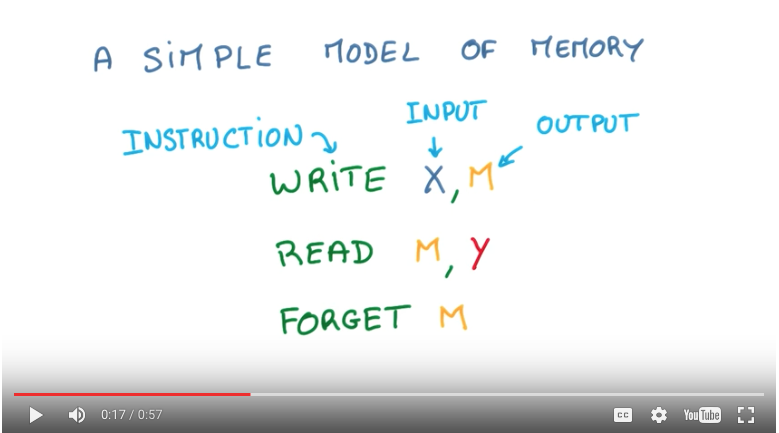 A SiMPLE MODEL OF MEMORY
INPUT
INSTRUCTiON
OUTPUT
WRiTE X, M
READ M, Y
FORGET M
0:17 / 0:57
CC
YouTube